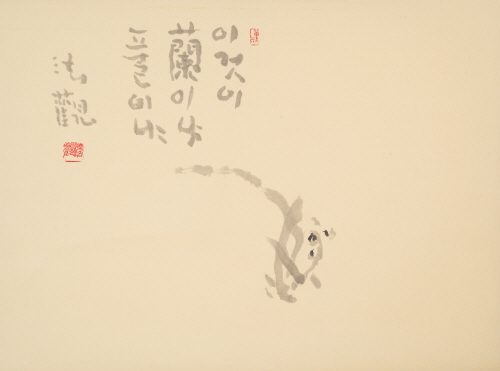 이것이
蘭이냐
풀이냐
法觀